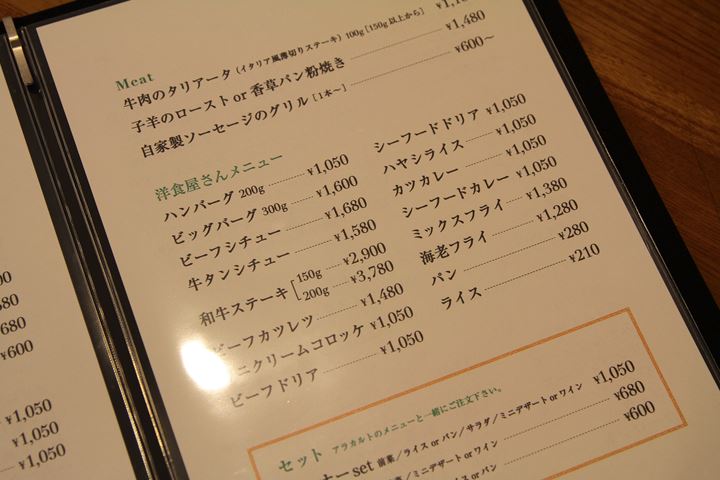 Meat
牛肉のタリアータ（イタリア風薄切りステーキ）100g［150g以上から］
子羊のロースト or 香草パン粉焼き ¥1,480
自家製ソーセージのグリル［1本～］ ¥600～
洋食屋さんメニュー
ハンバーグ 200g ¥1,050
ビッグバーグ 300g ¥1,600
ビーフシチュー ¥1,680
牛タンシチュー ¥1,580
和牛ステーキ 150g ¥2,900
200g ¥3,780
ビーフカツレツ ¥1,480
ニクリームコロッケ ¥1,050
ビーフドリア ¥1,050
シーフードドリア ¥1,050
ハヤシライス ¥1,050
カツカレー ¥1,050
シーフードカレー ¥1,050
ミックスフライ ¥1,380
海老フライ ¥1,280
パン ¥280
ライス ¥210
セット アラカルトのメニューと一緒にご注文下さい。
ナー set 前菜／ライス or パン／サラダ／ミニデザート or ワイン ¥1,050
／ミニデザート or ワイン ¥680
／ライス or パン ¥600
680
¥600
¥1,050
¥1,050
¥1,050